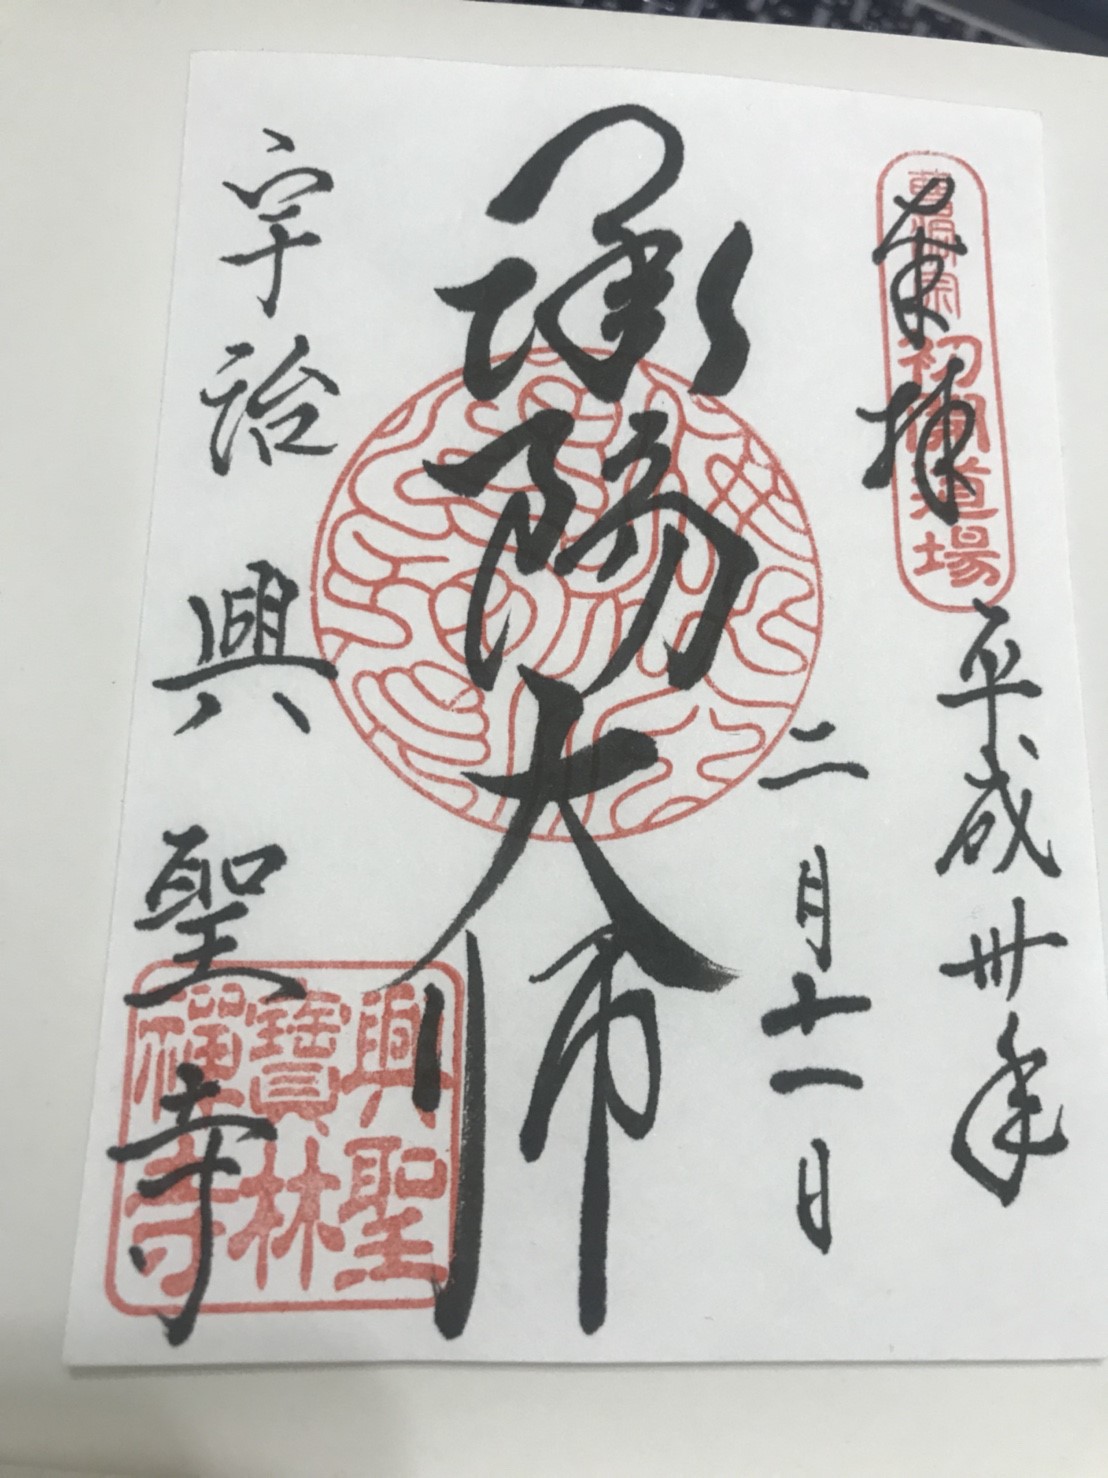 奉拝
曹洞宗
初開道場
平成卅年
二月十一日
承陽大師
宇治 興聖寺
興聖
寶林
禅寺